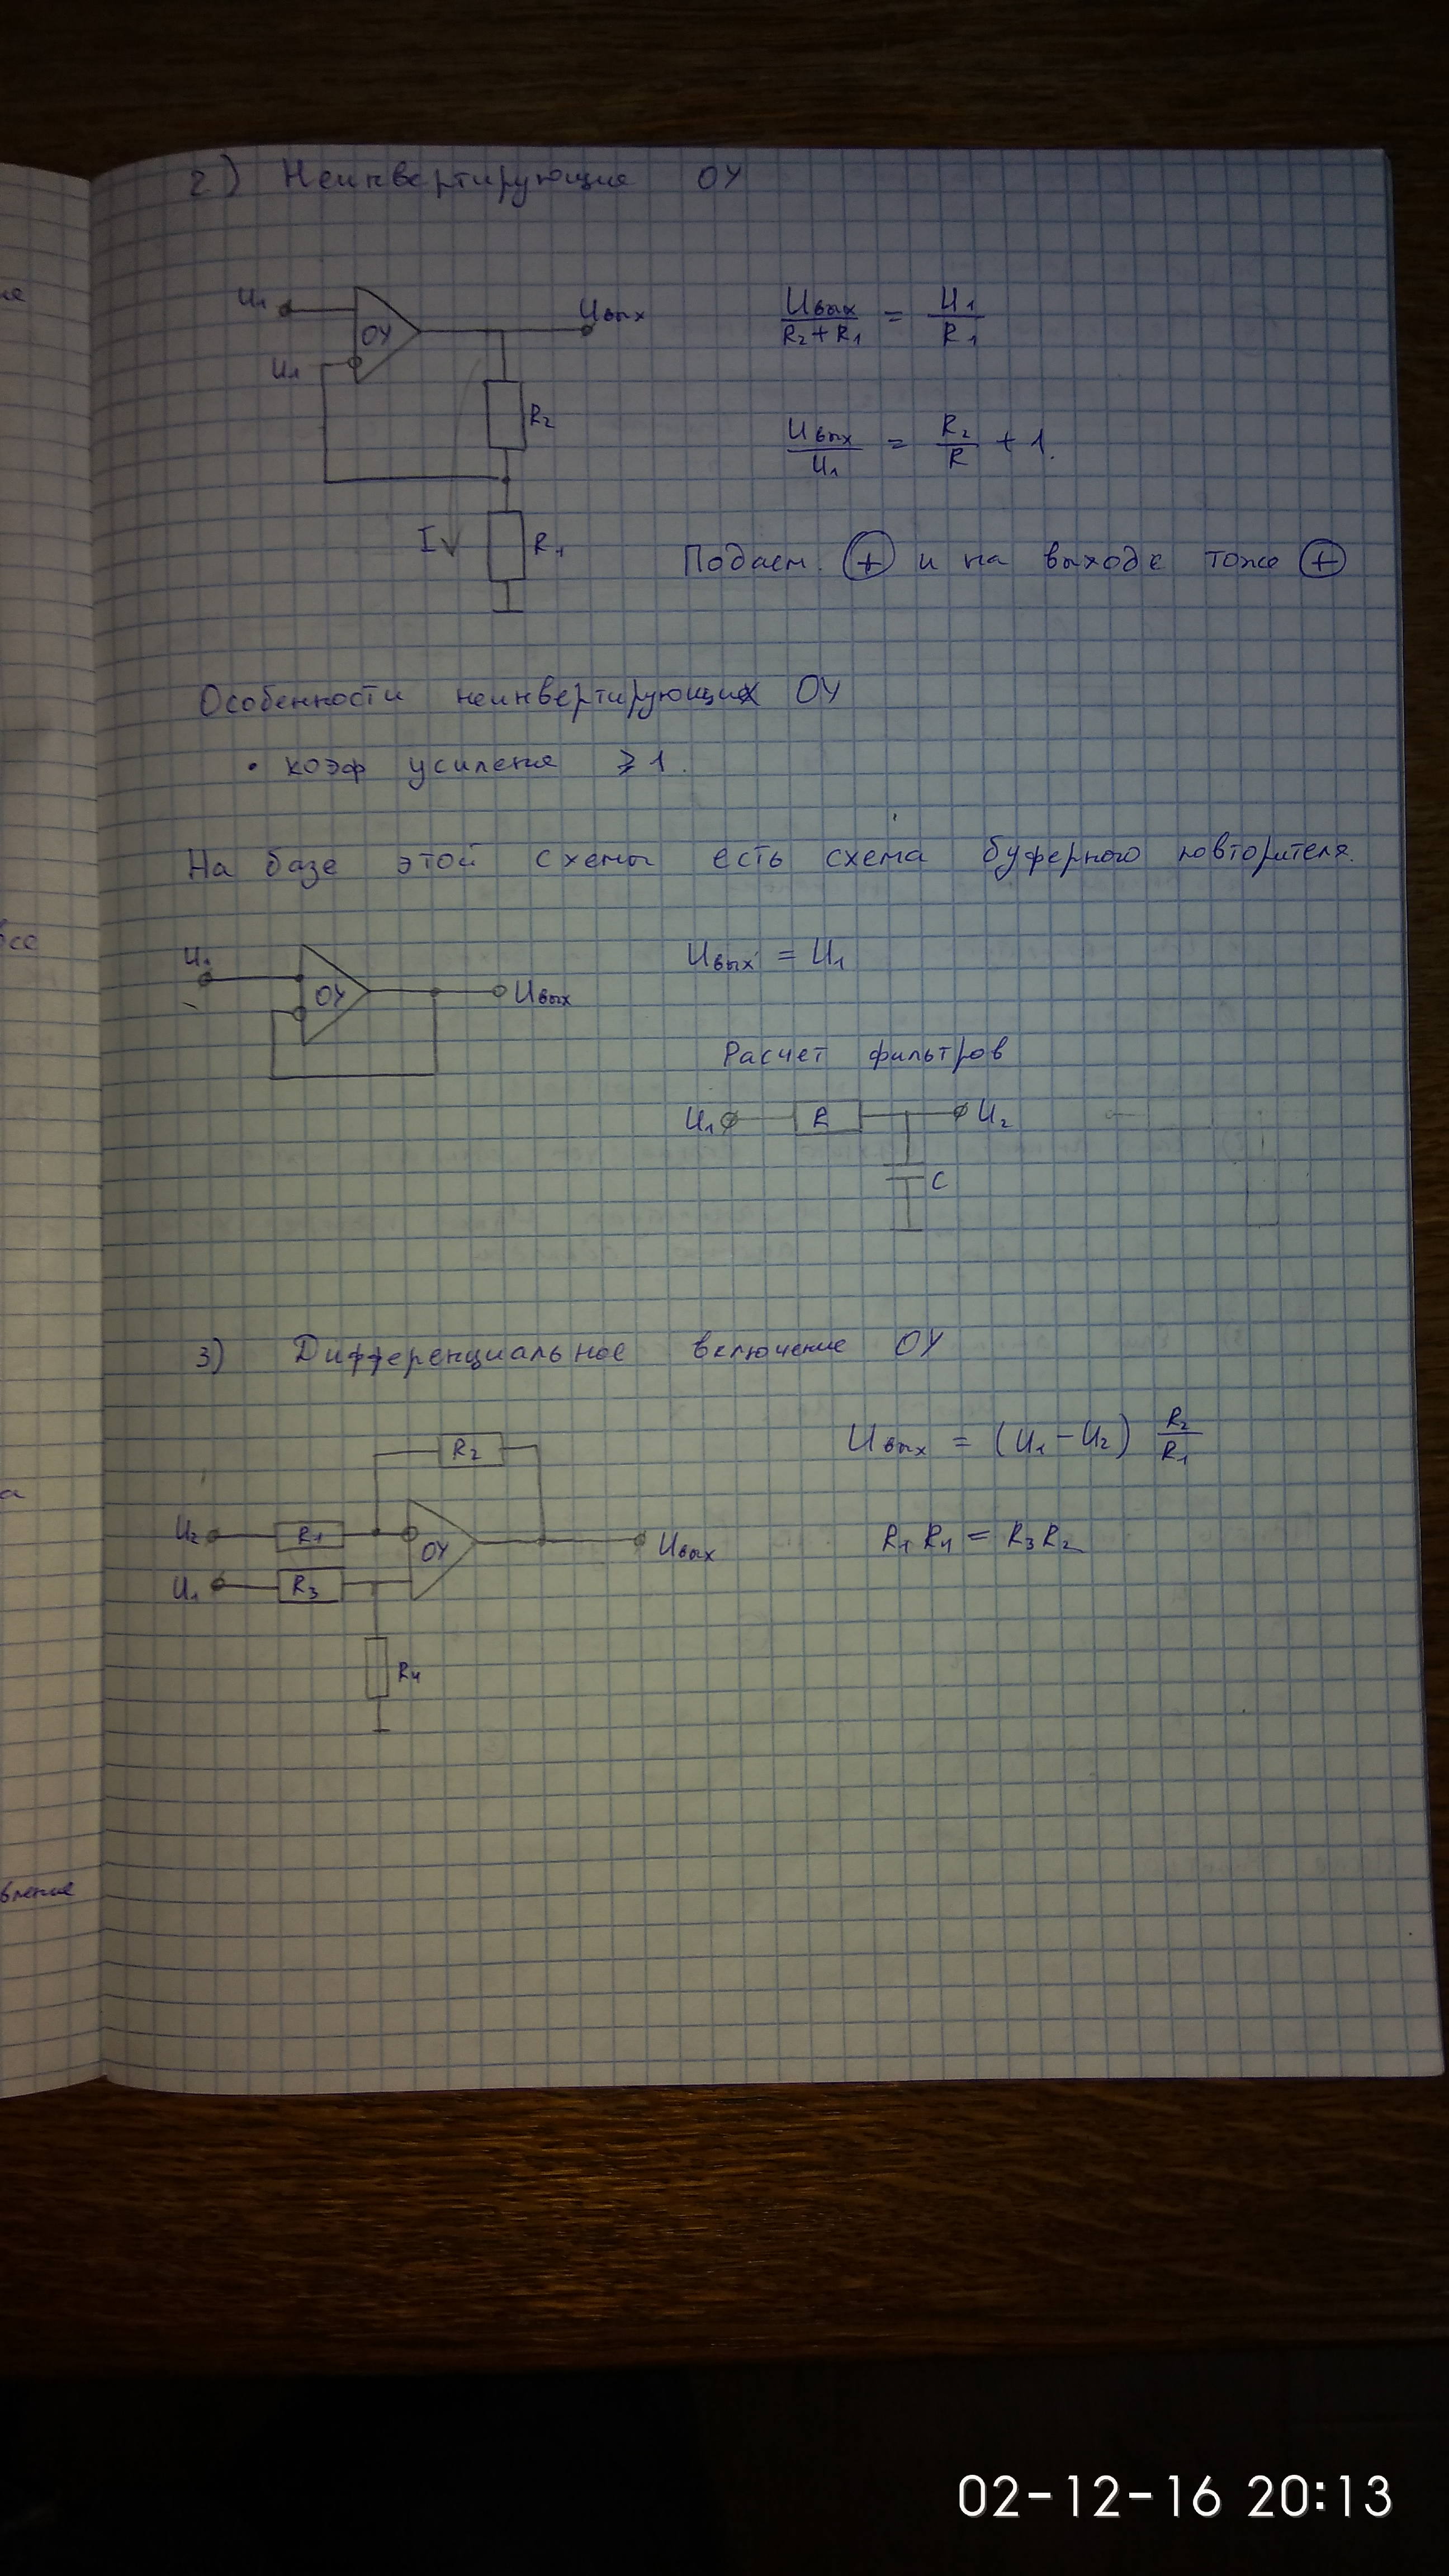 2) Неинвертирующие ОУ
U₁
ОУ
Uвых
U₁
R₂
I
R₁
Uвых / (R₂ + R₁) = U₁ / R₁
Uвых / U₁ = R₂ / R + 1.
Подаем. (+) и на выходе тоже (+)
Особенности неинвертирующих ОУ
• коэф усиления ⩾ 1.
На базе этой схемы есть схема буферного повторителя.
U₁
ОУ
Uвых
Uвых = U₁
Расчет фильтров
U₁
R
U₂
C
3) Дифференциальное включение ОУ
R₂
U₂
R₁
ОУ
Uвых
U₁
R₃
R₄
Uвых = (U₁ − U₂) R₂ / R₁
R₁ R₄ = R₃ R₂
все
а
вление
02-12-16 20:13